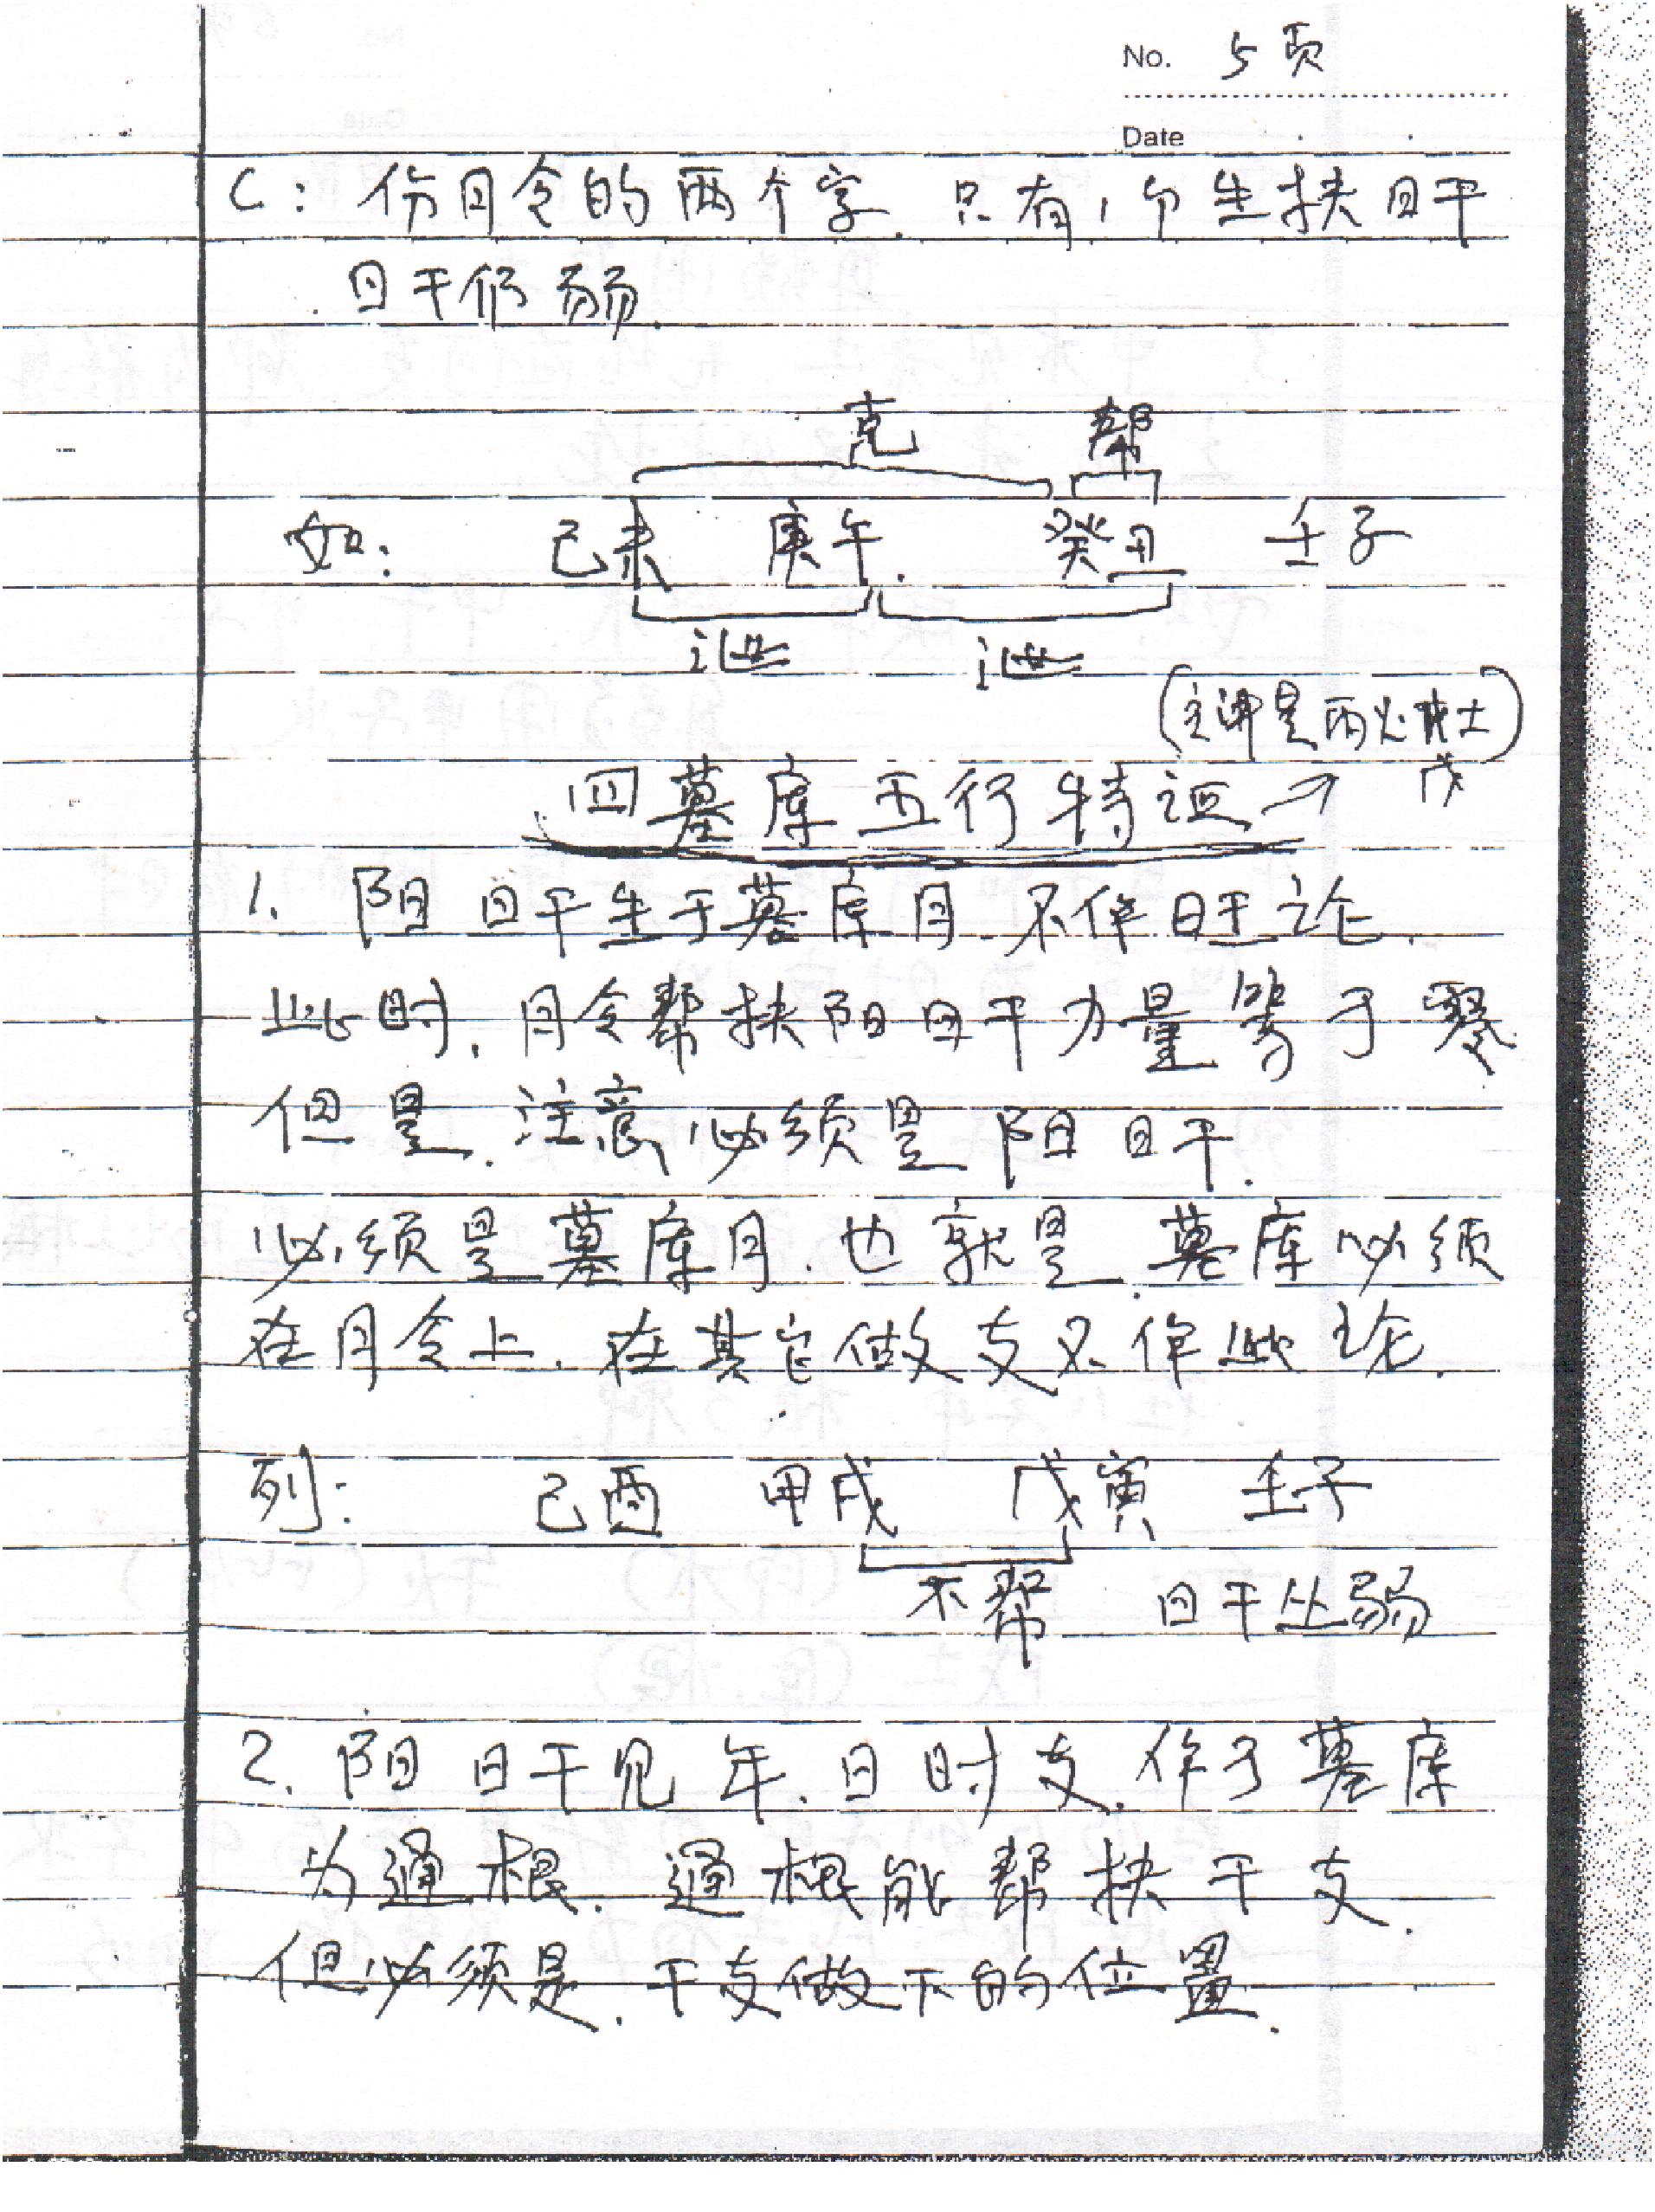 No. 5页
Date
C: 伤月令的两个字.只有1个生扶日干
日干仍弱.
克 帮
如: 己未 庚午. 癸丑 壬子
泄 泄
(主讲是丙火戊土)
四墓库五行特证→ 戊
1. 阳日干生于墓库月.不作旺论.
此时.月令帮扶阳日干力量等于零
但是.注意必须是阳日干.
必须是墓库月.也就是.墓库必须
在月令上.在其它做支不作此论.
列: 己酉 甲戌 戊寅 壬子
不帮 日干丛弱
2. 阳日干见年.日时支.作了墓库
为通根.通根能帮扶干支.
但必须是.干支做下的位置.